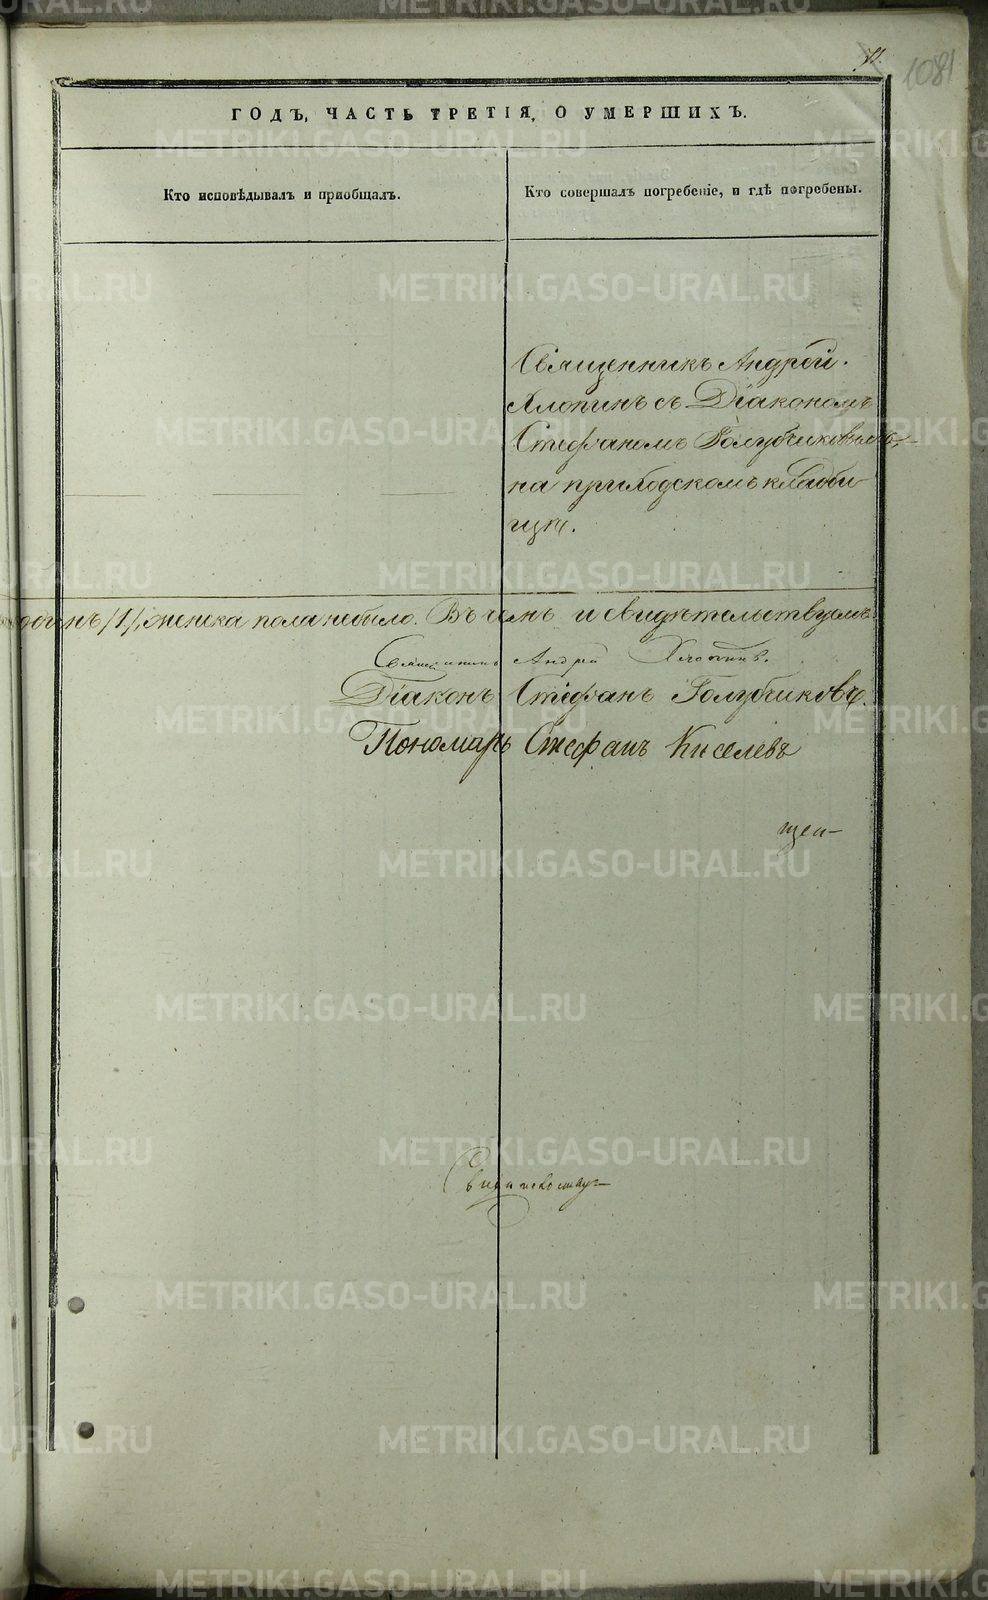 1081
ГОДЪ, ЧАСТЬ ТРЕТІЯ, О УМЕРШИХЪ.
Кто исповѣдывалъ и приобщалъ.
Кто совершалъ погребеніе, и гдѣ погребены.
Священникъ Андрей
Хлопинъ съ Діакономъ
Стефаномъ Голубчиковымъ,
на приходскомъ кладби
щѣ.
одинъ /1/, женска пола небыло. Въ чемъ и свидѣтельствуемъ.
Священникъ Андрей Хлопинъ.
Діаконъ Стефанъ Голубчиковъ.
Пономарь Стефанъ Киселевъ
METRIKI.GASO-URAL.RU